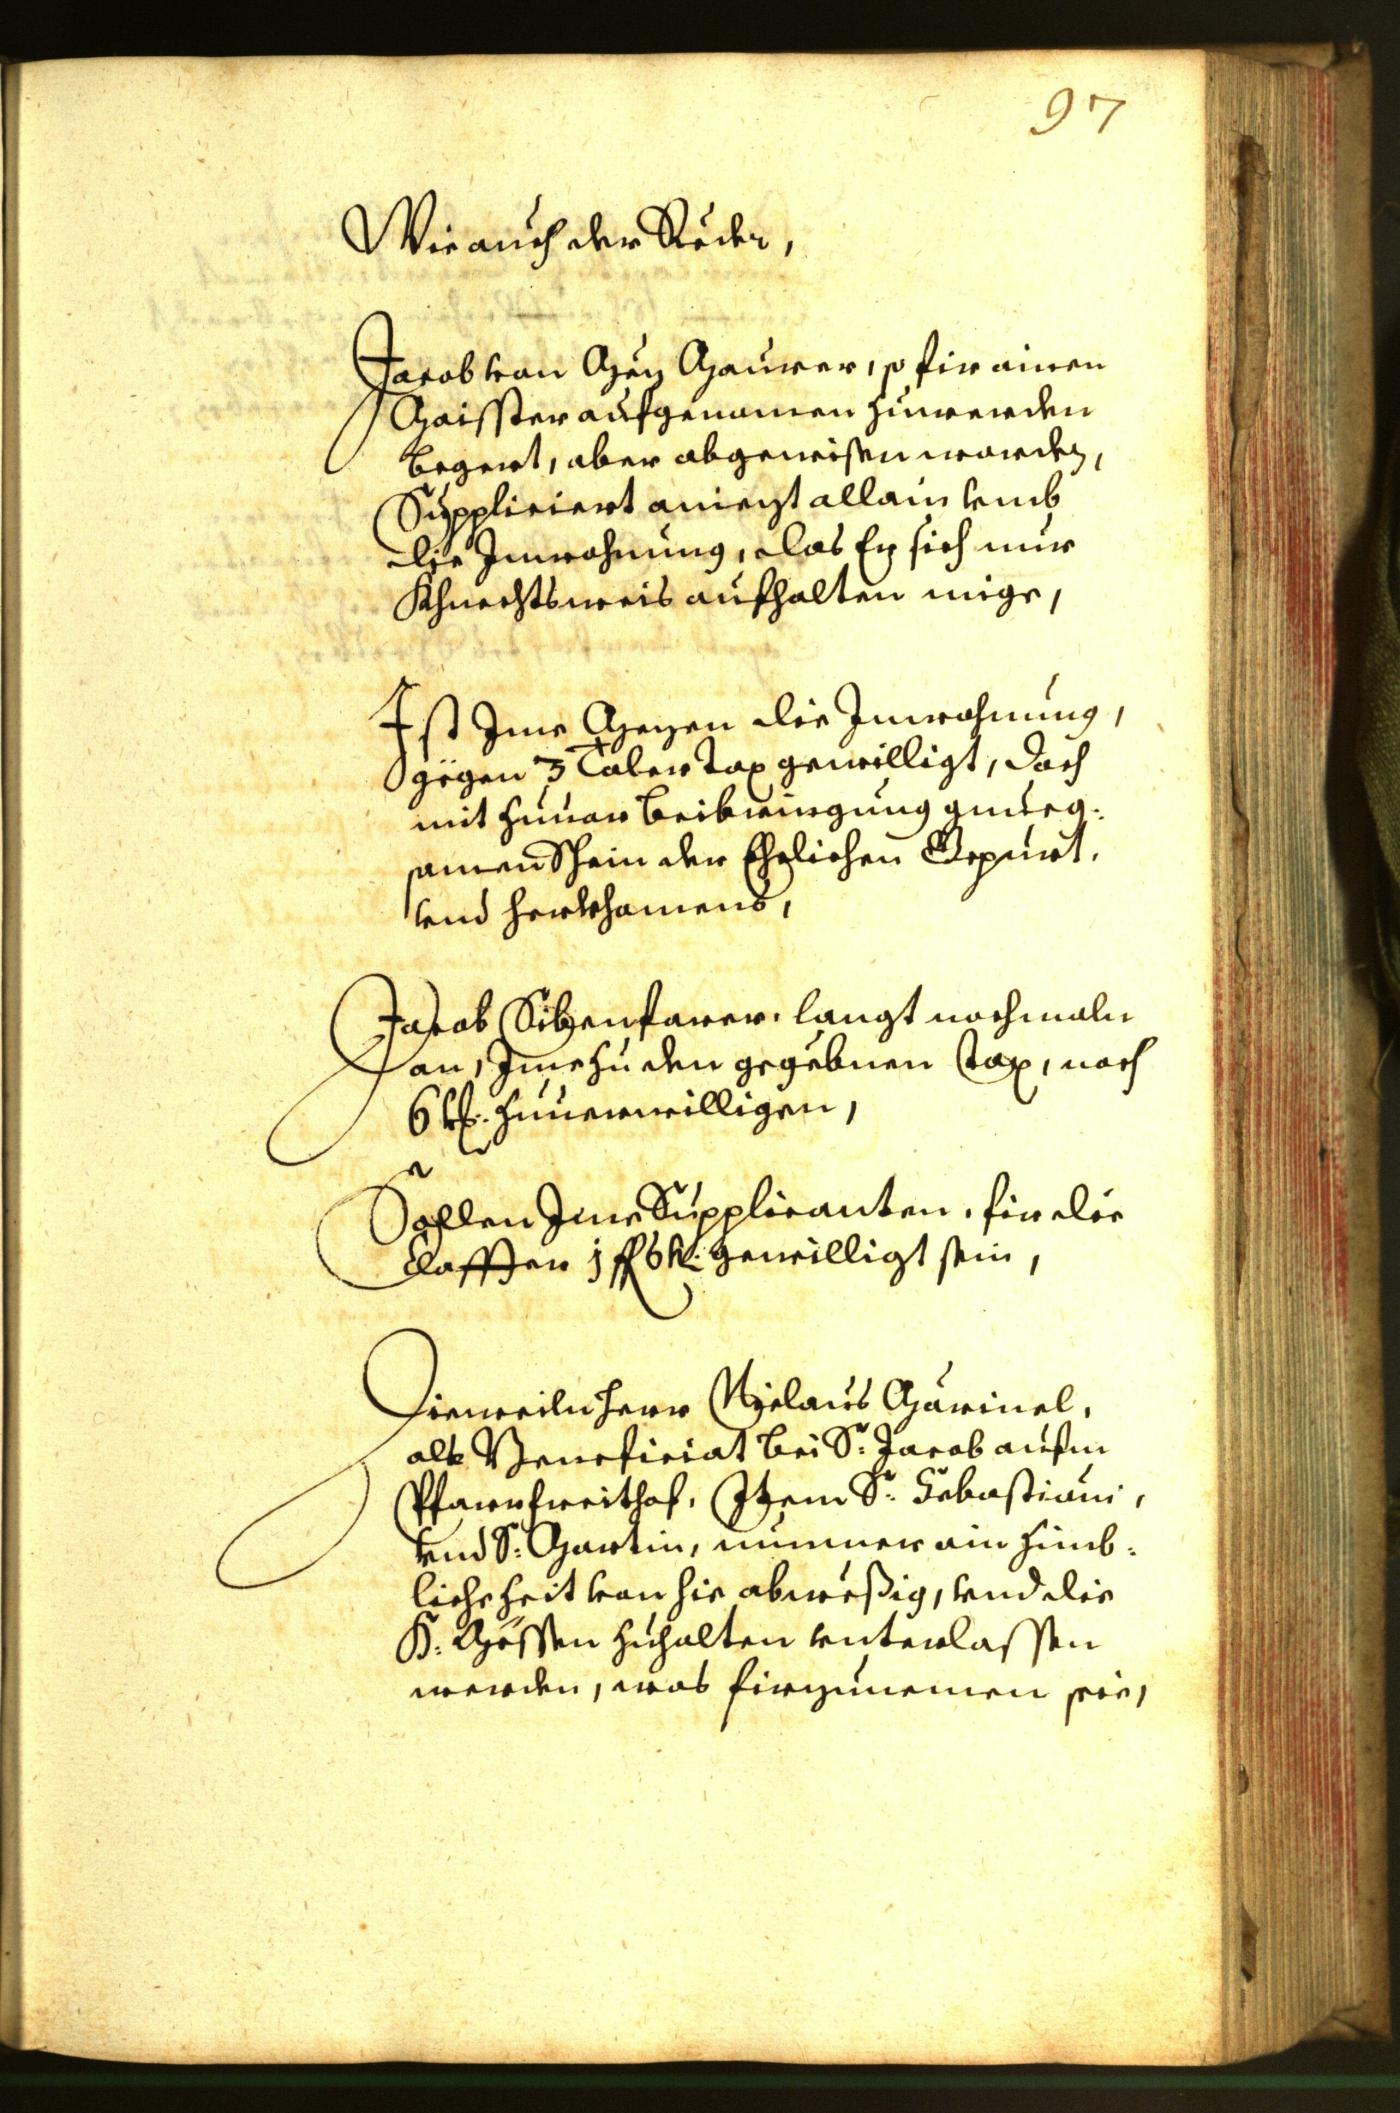 97
Wie auch der Rueder,
Jacob von Mez Maurer, so fir ainen
Maisster aufgenomen zuwerden
begert, aber abgewisen worden,
Suppliciert aniezt allain vmb
die Inwohnung, das Er sich nur
Khnechtsweis aufhalten mige,
Ist Ime Mezen die Inwohnung,
gegen 3 Taler Tax gewilligt, doch
mit zuuor beibringung gnueg:
samen Schein der Ehelichen Gepurt,
vnd herkhomens,
Jacob Sibenfarer, langt nochmaln
an, Ime zu den gegebnen Tax, noch
6 kr. zuuerwilligen,
Sollen Ime Supplicanten, fir die
Claffter 1 fl 6 kr. gewilligt sein,
Dieweiln herr Niclaus
als Beneficiat bei S: Jacob aufm
Pfarrfreithof, Item S: Sebastiani,
vnd S: Martin, nunmer ain zimb:
liche Zeit von hie abweßig, vnd die
H: Mössen zuhalten vnterlassen
werden, was firzunemen seie,